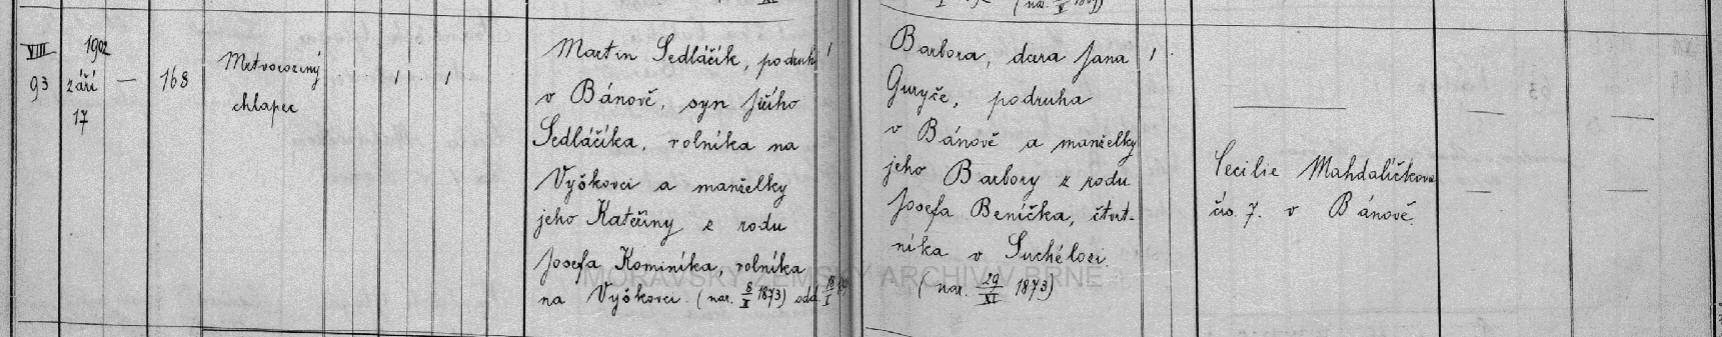 VIII
93
1902
září
17
—
168
Mrtvorozený
chlapec
1
1
Martin Sedláčík, podruh
v Bánově, syn Jiřího
Sedláčíka, rolníka na
Vyškovci a manželky
jeho Kateřiny z rodu
Josefa Kominíka, rolníka
na Vyškovci. (nar. 8/X 1873) odd.
1
Barbora, dcera Jana
Guryče, podruha
v Bánově a manželky
jeho Barbory z rodu
Josefa Beníčka, čtvrt-
níka v Suchélozi
(nar. 29/XI 1873)
1
Cecilie Mahdalíčkova
čís. 7. v Bánově.
MORAVSKÝ ZEMSKÝ ARCHIV V BRNĚ